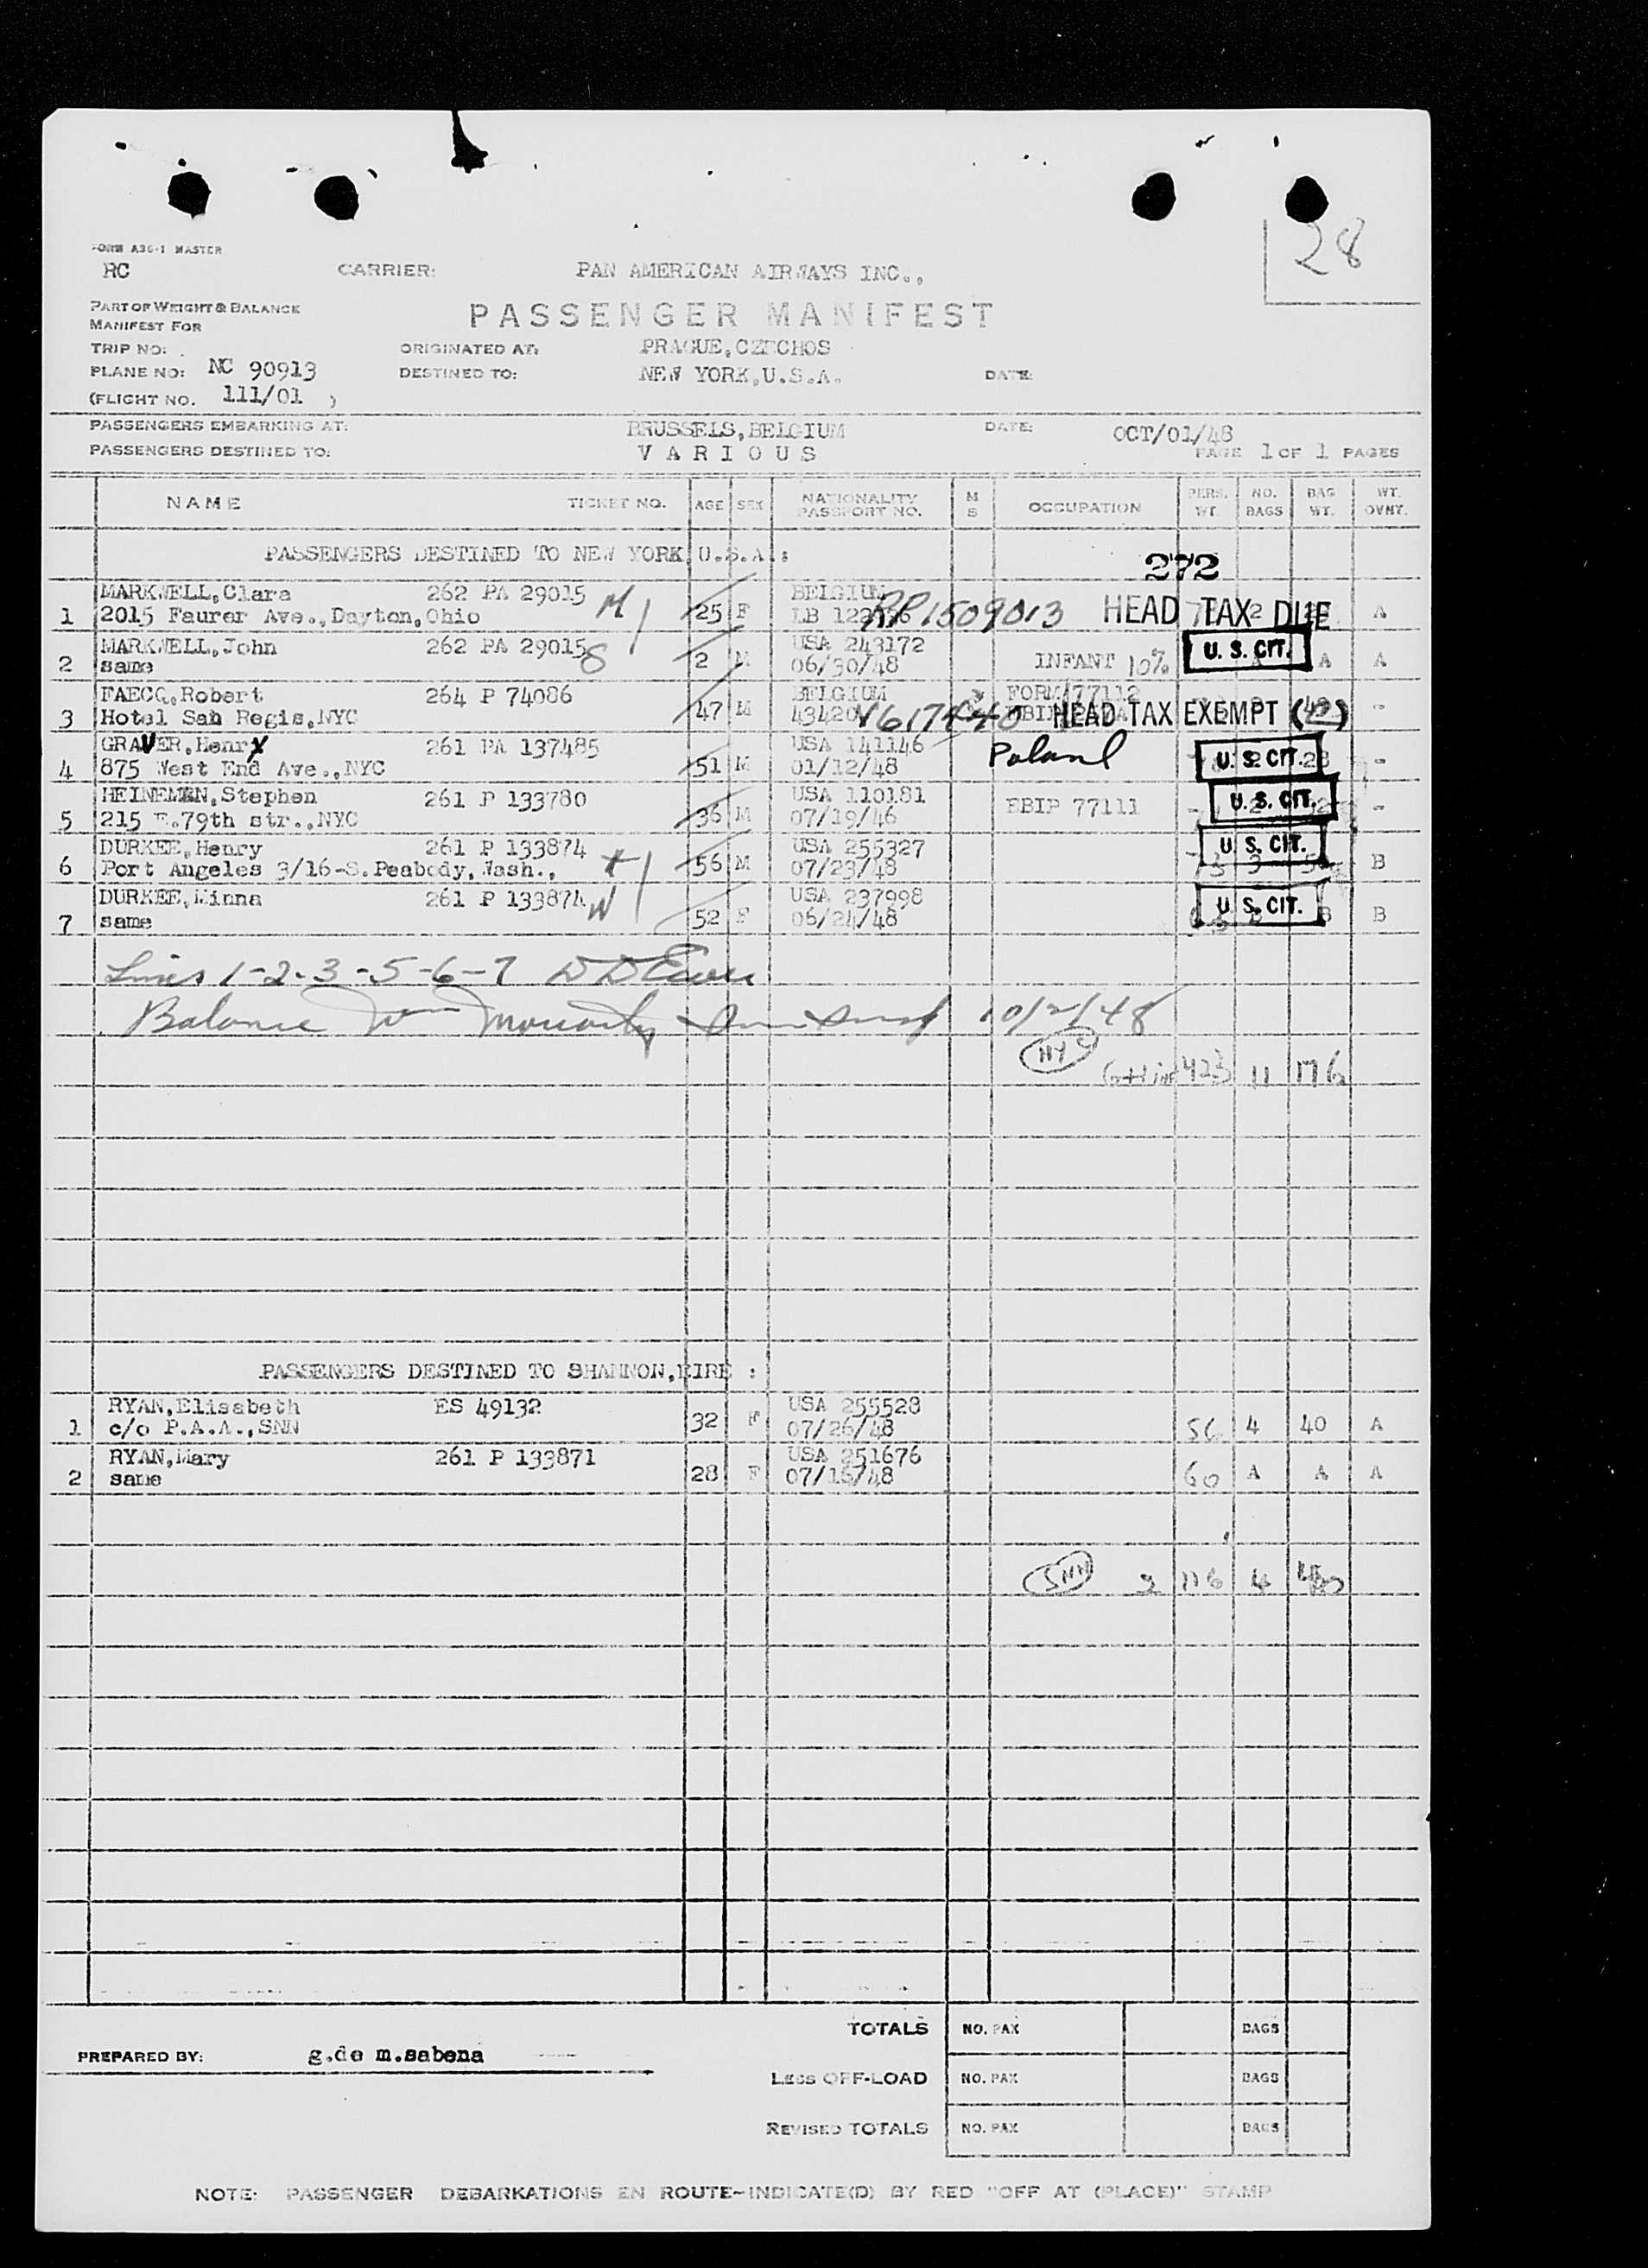 28
FORM A30-1 MASTER
RC CARRIER: PAN AMERICAN AIRWAYS INC.,
PART OF WEIGHT & BALANCE
MANIFEST FOR
PASSENGER MANIFEST
TRIP NO: ORIGINATED AT: PRAGUE, CZECHOS
PLANE NO: NC 90913 DESTINED TO: NEW YORK, U.S.A. DATE:
(FLIGHT NO. 111/01 )
PASSENGERS EMBARKING AT: BRUSSELS, BELGIUM DATE: OCT/01/48
PASSENGERS DESTINED TO: VARIOUS PAGE 1 OF 1 PAGES
NAME TICKET NO. AGE SEX NATIONALITY PASSPORT NO. M S OCCUPATION PERS. WT. NO. BAGS BAG WT. WT. OVNT.
PASSENGERS DESTINED TO NEW YORK, U.S.A.:
272
MARKWELL, Clara 262 PA 29015 M BELGIUM
1 2015 Faurer Ave., Dayton, Ohio 25 F LB RP1509013 HEAD TAX DUE A
MARKWELL, John 262 PA 29015 S USA 243172 U. S. CIT.
2 same 2 M 06/30/48 INFANT 10% A A
FAECQ, Robert 264 P 74086 BELGIUM FORM/77112
3 Hotel San Regis, NYC 47 M HEAD TAX EXEMPT -
GRAVER, Henry 261 PA 137485 USA 141146 Poland U. S. CIT.
4 875 West End Ave., NYC 51 M 01/12/48 28 -
HEINEMAN, Stephen 261 P 133780 USA 110181 U. S. CIT.
5 215 E.79th str., NYC 36 M 07/19/46 EBIP 77111 -
DURKEE, Henry 261 P 133874 USA 255327 U. S. CIT.
6 Port Angeles 3/16-S.Peabody, Wash., 56 M 07/23/48 3 B
DURKEE, Minna 261 P 133874 W USA 237998 U. S. CIT.
7 same 52 F 06/24/48 B B
Lines 1-2-3-5-6-7
Balance 10/2/48
NYC
423 11 176
PASSENGERS DESTINED TO SHANNON, EIRE :
RYAN, Elisabeth ES 49132 USA 255528
1 c/o P.A.A., SNN 32 F 07/26/48 56 4 40 A
RYAN, Mary 261 P 133871 USA 251676
2 same 28 F 07/16/48 60 A A A
SNN 2 116 4
TOTALS NO. PAX BAGS
PREPARED BY: g.de m.sabena
LESS OFF-LOAD NO. PAX BAGS
REVISED TOTALS NO. PAX BAGS
NOTE: PASSENGER DEBARKATIONS EN ROUTE-INDICATE(D) BY RED "OFF AT (PLACE)" STAMP